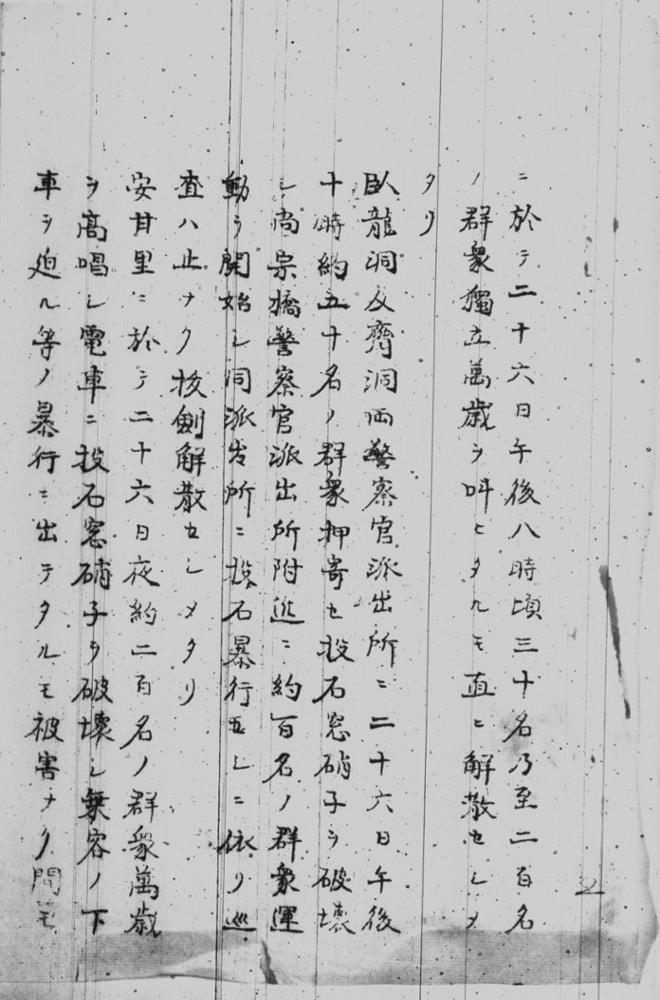 ニ於テ二十六日午後八時頃三十名乃至二百名
ノ群衆獨立萬歳ヲ叫ヒタルモ直ニ解散セシメ
タリ
臥龍洞及齊洞両警察官派出所ニ二十六日午後
十時約五十名ノ群衆押寄セ投石窓硝子ヲ破壊
シ尚宗橋警察官派出所附近ニ約百名ノ群衆運
動ヲ開始シ同派出所ニ投石暴行セシニ依リ巡
査ハ止ナク抜劍解散セシメタリ
安甘里ニ於テ二十六日夜約二百名ノ群衆萬歳
ヲ高唱シ電車ニ投石窓硝子ヲ破壊シ乗客ノ下
車ヲ迫ル等ノ暴行ニ出テタルモ被害ナク間モ
2